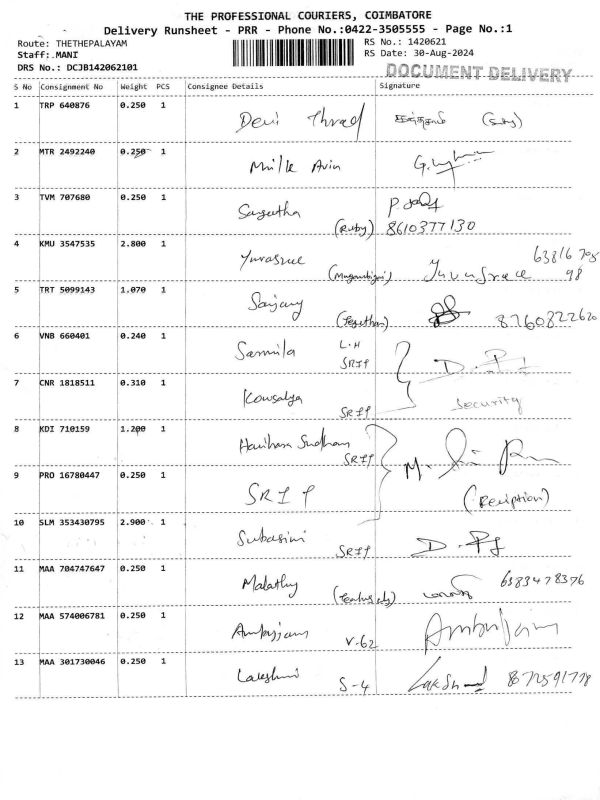 THE PROFESSIONAL COURIERS, COIMBATORE
Delivery Runsheet - PRR - Phone No.:0422-3505555 - Page No.:1
Route: THETHEPALAYAM
Staff: MANI
DRS No.: DCJB142062101
RS No.: 1420621
RS Date: 30-Aug-2024
DOCUMENT DELIVERY
S No Consignment No Weight PCS Consignee Details Signature
1 TRP 640876 0.250 1 Devi
2 MTR 2492240 0.250 1 Milk Avin
3 TVM 707680 0.250 1 Sangeetha (Ruby) 8610377130
4 KMU 3547535 2.800 1 Yuvasree 63816 705
98
5 TRT 5099143 1.070 1 Sanjay 8760822620
6 VNB 660401 0.240 1 Sarmila L.H
SRIT
7 CNR 1818511 0.310 1 Kowsalya SRIT Security
8 KDI 710159 1.200 1 Harihara Sudhan SRIT
9 PRO 16780447 0.250 1 SRIT (Reciption)
10 SLM 353430795 2.900 1 Subasini SRIT
11 MAA 704747647 0.250 1 Malathy 6383478376
12 MAA 574006781 0.250 1 V-62
13 MAA 301730046 0.250 1 Lakshmi S-4